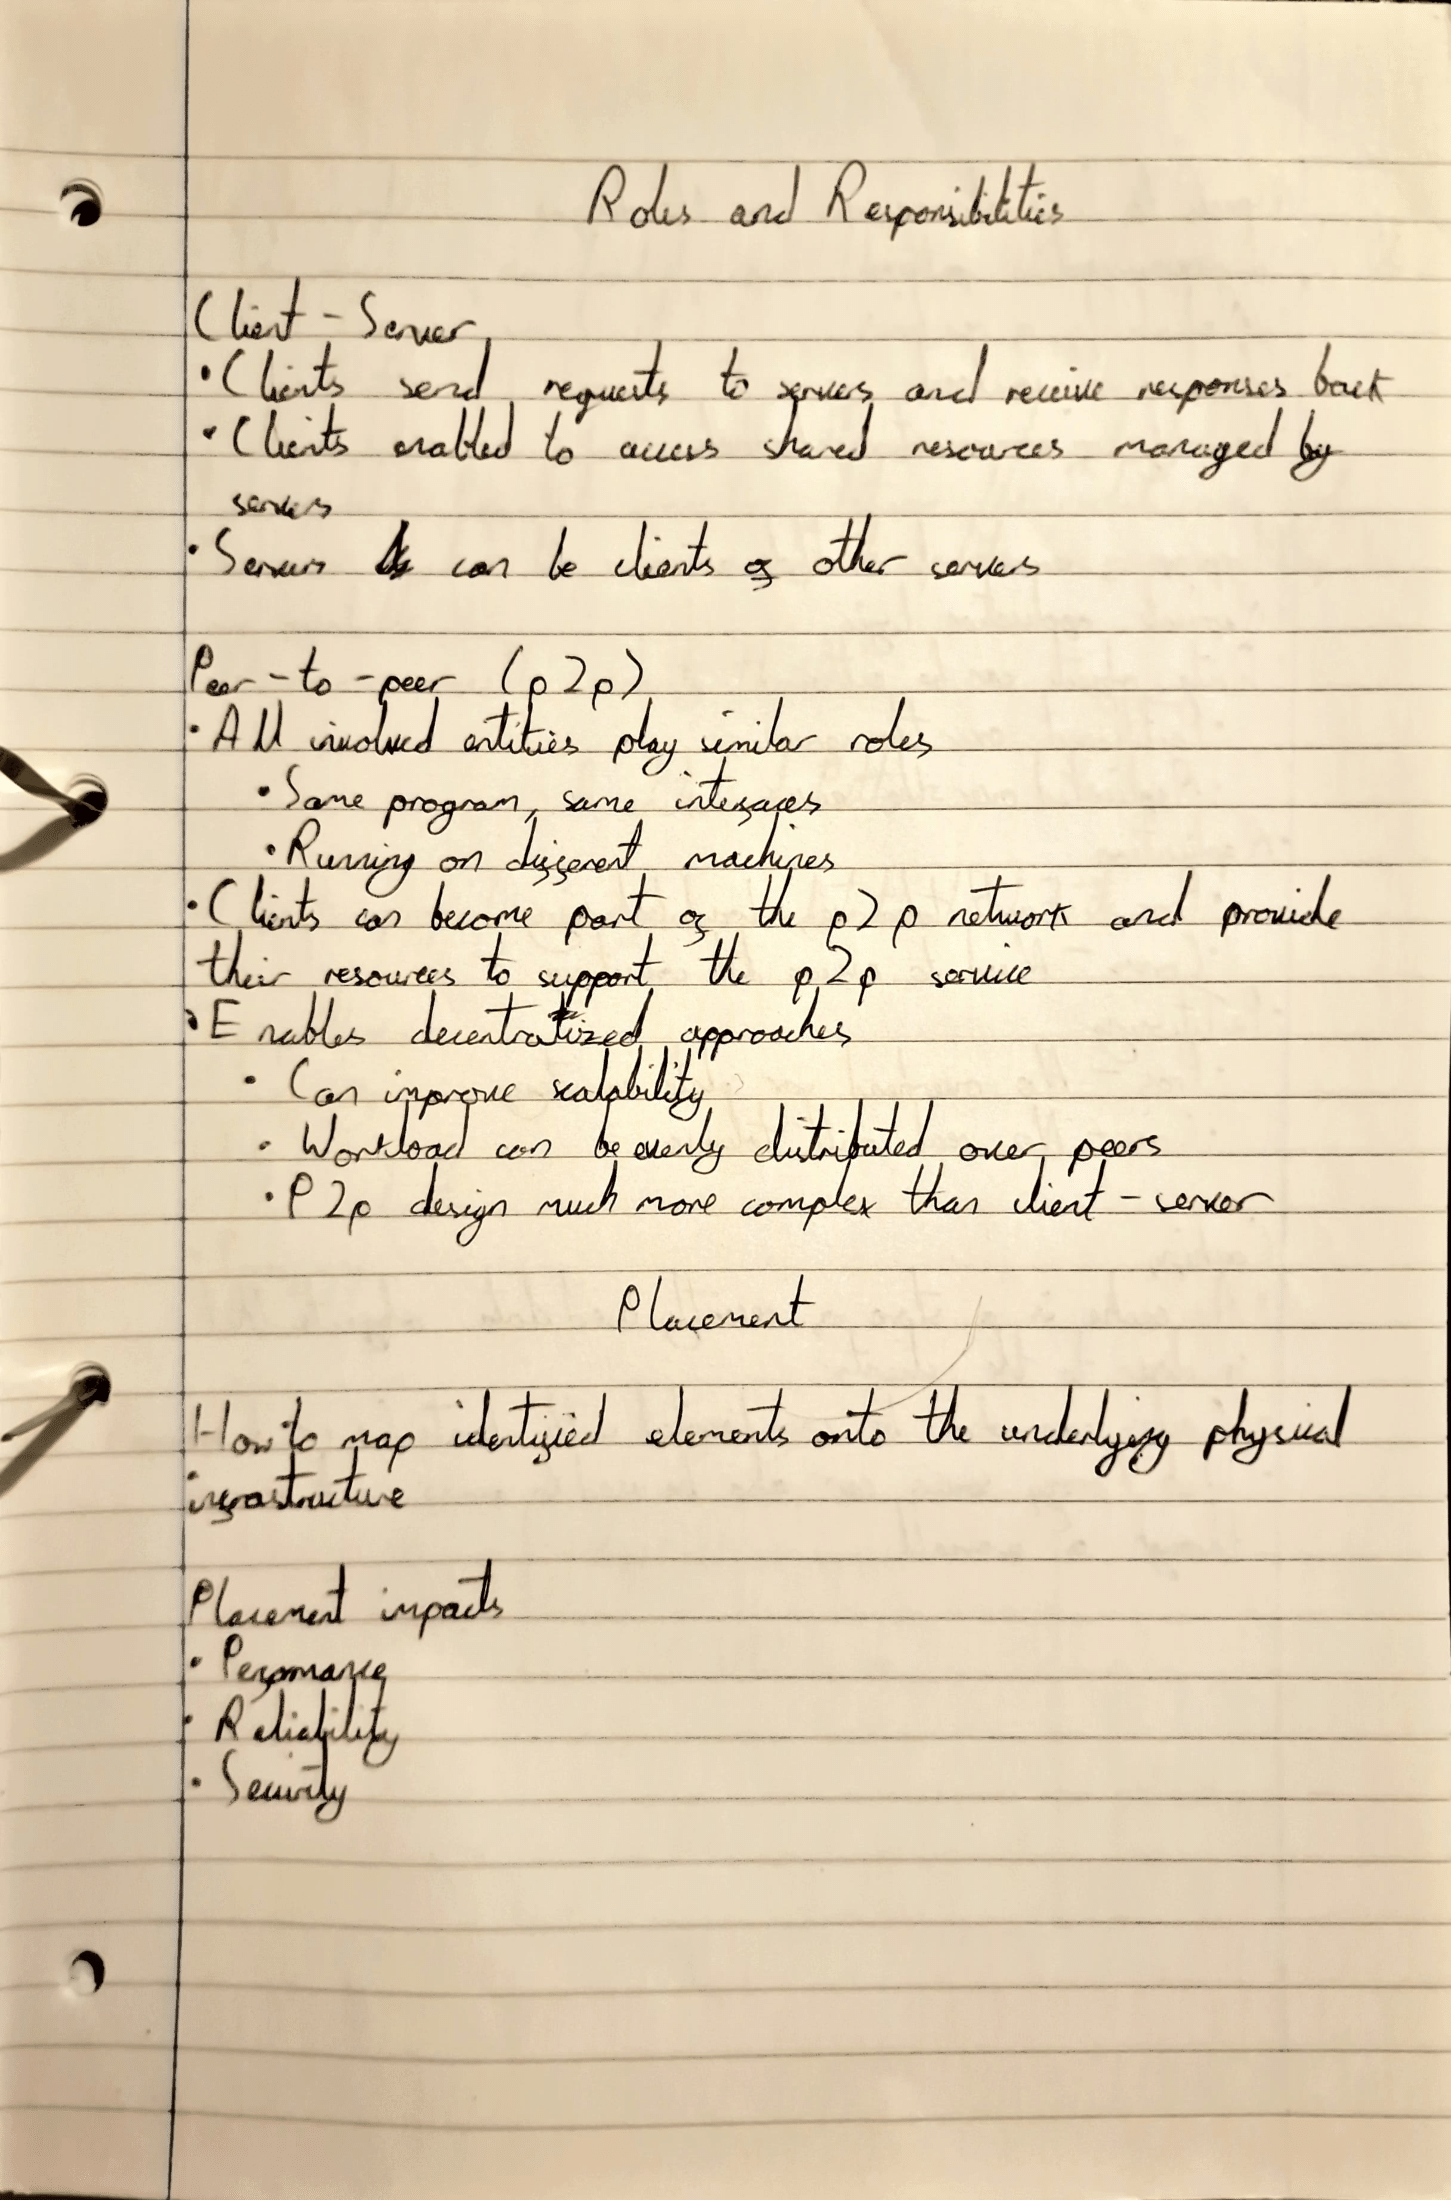 Roles and Responsibilities
Client - Server
• Clients send requests to servers and receive responses back
• Clients enabled to access shared resources managed by
servers
• Servers can be clients of other servers
Peer-to-peer (p2p)
• All involved entities play similar roles
• Same program, same interfaces
• Running on different machines
• Clients can become part of the p2p network and provide
their resources to support the p2p service
• Enables decentralized approaches
• Can improve scalability
• Workload can be evenly distributed over peers
• P2p design much more complex than client-server
Placement
How to map identified elements onto the underlying physical
infrastructure
Placement impacts
• Perfomance
• Reliability
• Security